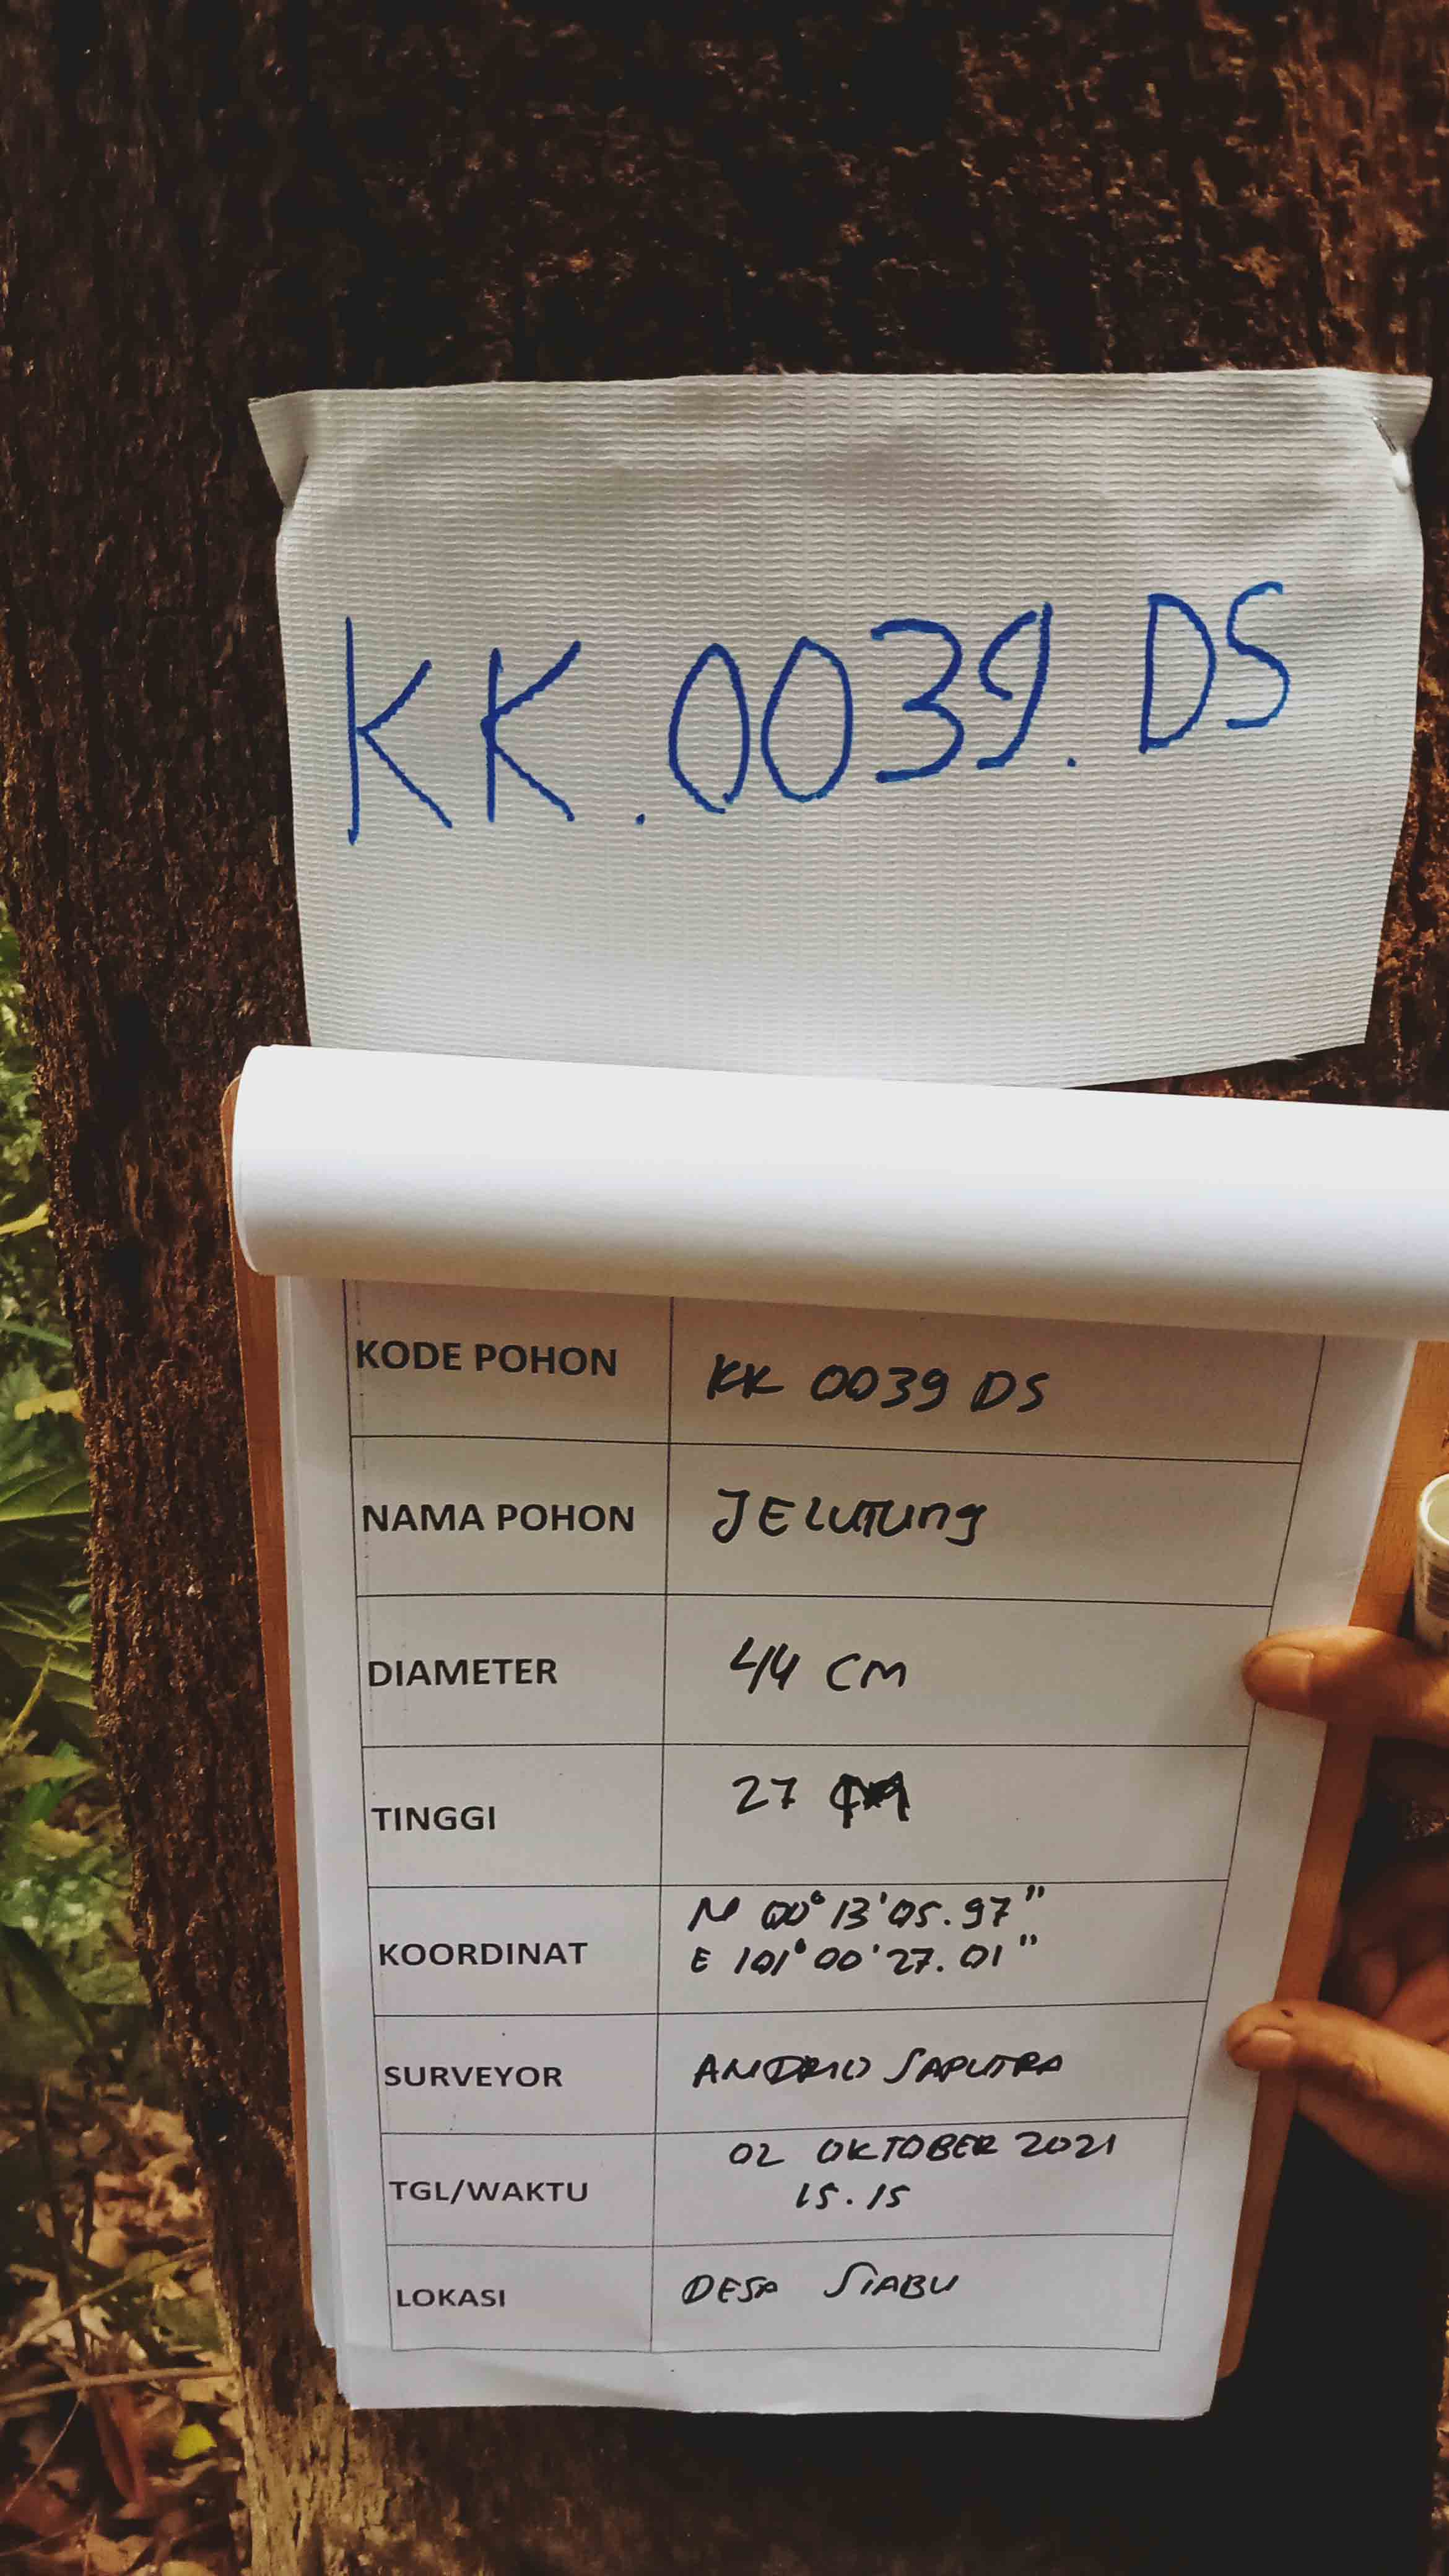 KK.0039.DS
KODE POHON KK 0039 DS
NAMA POHON JELUTUNG
DIAMETER 44 CM
TINGGI 27
KOORDINAT N 00°13'05.97"
E 101°00'27.01"
SURVEYOR ANDRIO SAPUTRA
TGL/WAKTU 02 OKTOBER 2021
15.15
LOKASI DESA SIABU